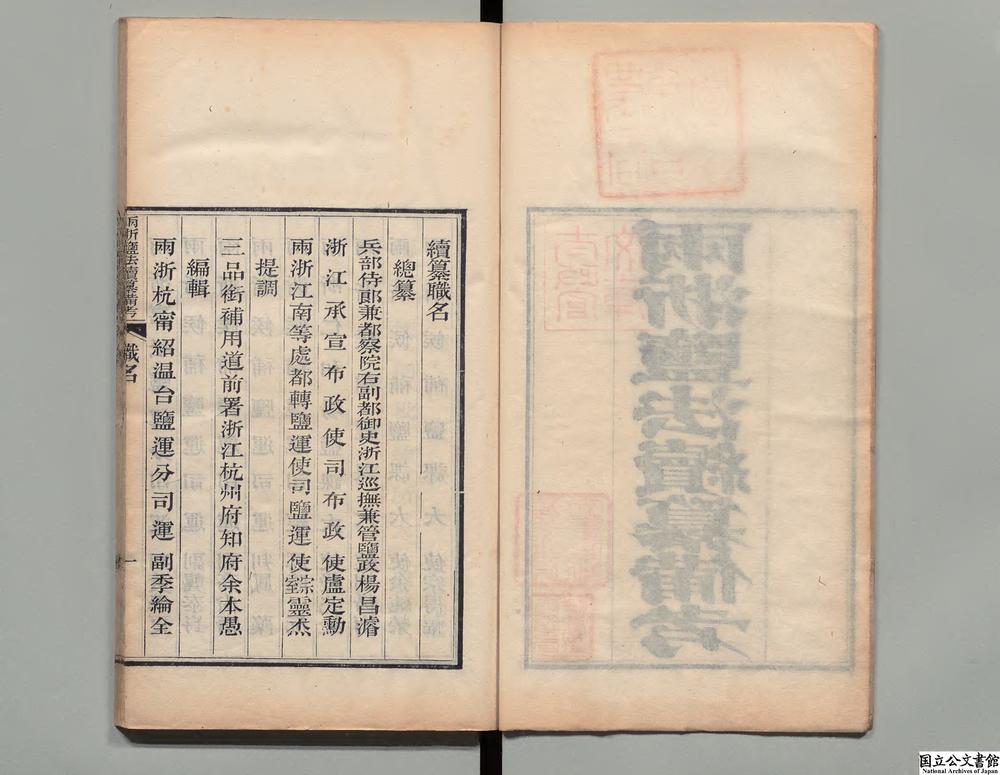 兩浙鹽法
續纂備考
續纂職名
總纂
兵部侍郎兼都察院右副都御史浙江巡撫兼管鹽政楊昌濬
浙江承宣布政使司布政使盧定勳
兩浙江南等處都轉鹽運使司鹽運使宗室靈杰
提調
三品銜補用道前署浙江杭州府知府余本愚
編輯
兩浙杭甯紹温台鹽運分司運副季綸全
兩浙鹽法續纂備考
職名
一
国立公文書館
National Archives of Japan